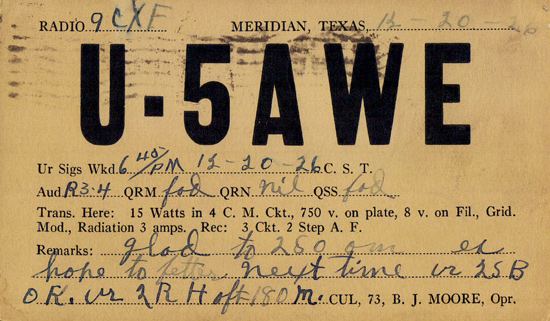 RADIO 9CXF MERIDIAN, TEXAS, 12-20-26
U-5AWE
Ur Sigs Wkd. 6 45/PM 12-20-26 C. S. T.
Aud. R3-4 QRM fod QRN nil QSS fod
Trans. Here: 15 Watts in 4 C. M. Ckt., 750 v. on plate, 8 v. on Fil., Grid.
Mod., Radiation 3 amps. Rec: 3 Ckt. 2 Step A. F.
Remarks: glad to om es
hope to next time ur QSB
O.K. ur 180 M. CUL, 73, B. J. MOORE, Opr.